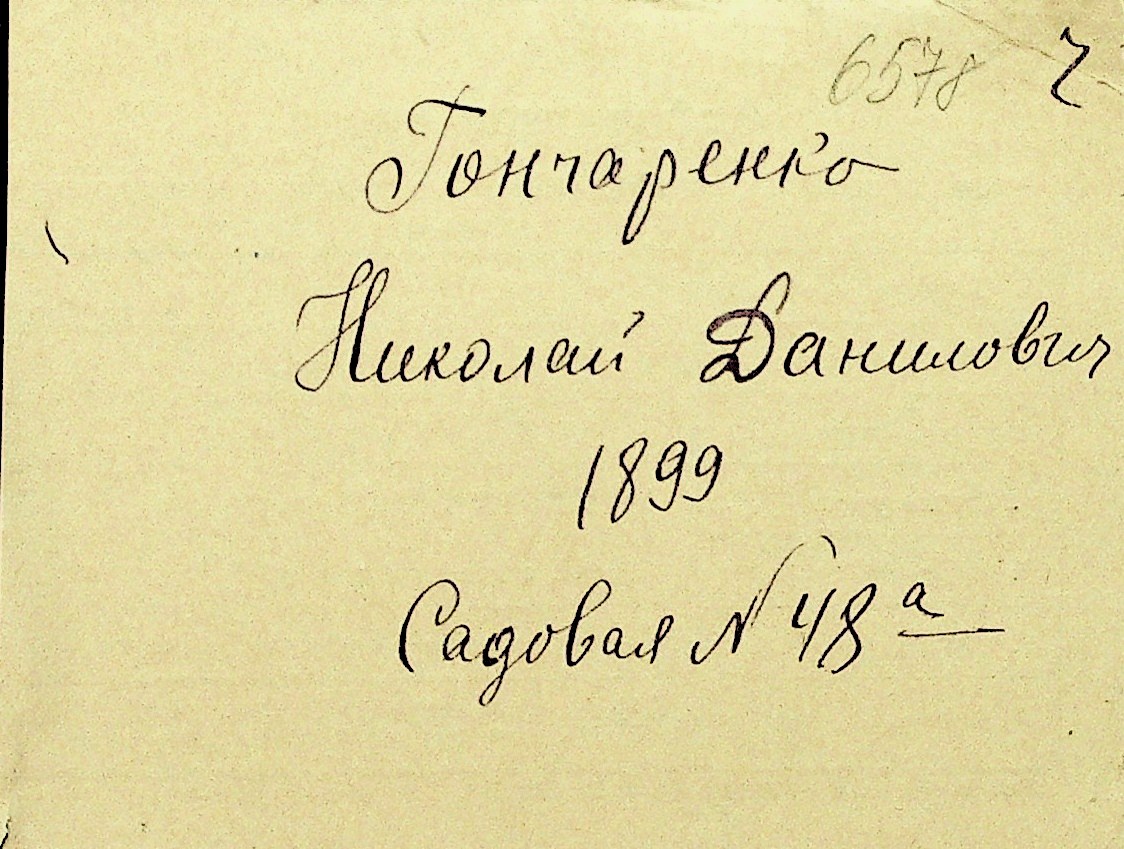 6578 ч
Гончаренко
Николай Данилович
1899
Садовая № 48 а